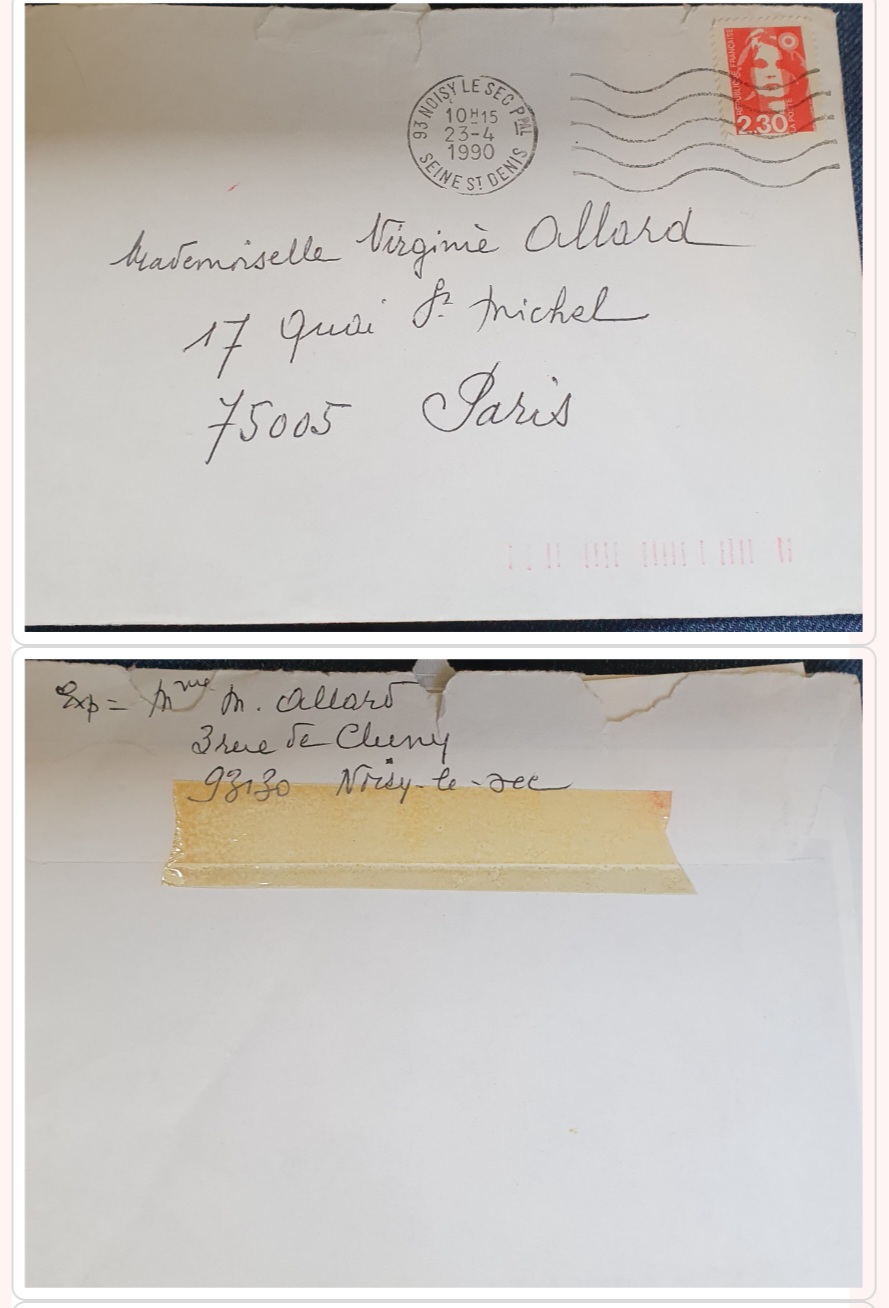 RÉPUBLIQUE FRANÇAISE
2.30
LA POSTE
93 NOISY LE SEC PPAL
10H15
23-4
1990
SEINE ST DENIS
Mademoiselle Virginie Allard
17 Quai St Michel
75005 Paris
Exp = Mme M. Allard
3 rue de Cluny
93130 Noisy-le-sec